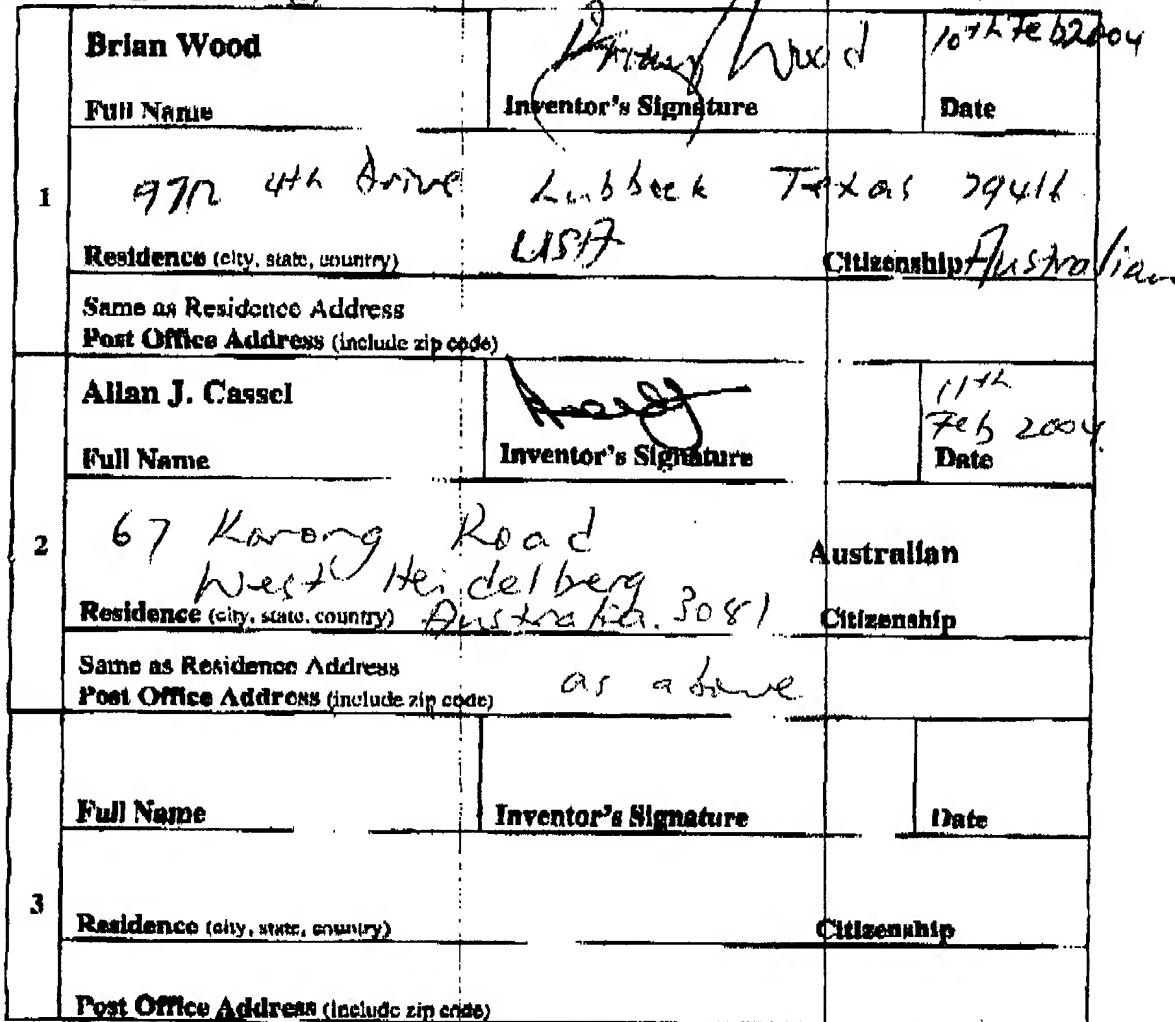 Brian Wood Wood 10th Feb 2004
Full Name Inventor's Signature Date
1
4th Drive Lubbock Texas
USA
Residence (city, state, country) Citizenship Australian
Same as Residence Address
Post Office Address (include zip code)
Allan J. Cassel 11th
Feb 2004
Full Name Inventor's Signature Date
2
67 Karong Road
West Heidelberg Australian
Residence (city, state, country) Australia. 3081 Citizenship
Same as Residence Address
Post Office Address (include zip code) as above
Full Name Inventor's Signature Date
3
Residence (city, state, country) Citizenship
Post Office Address (include zip code)